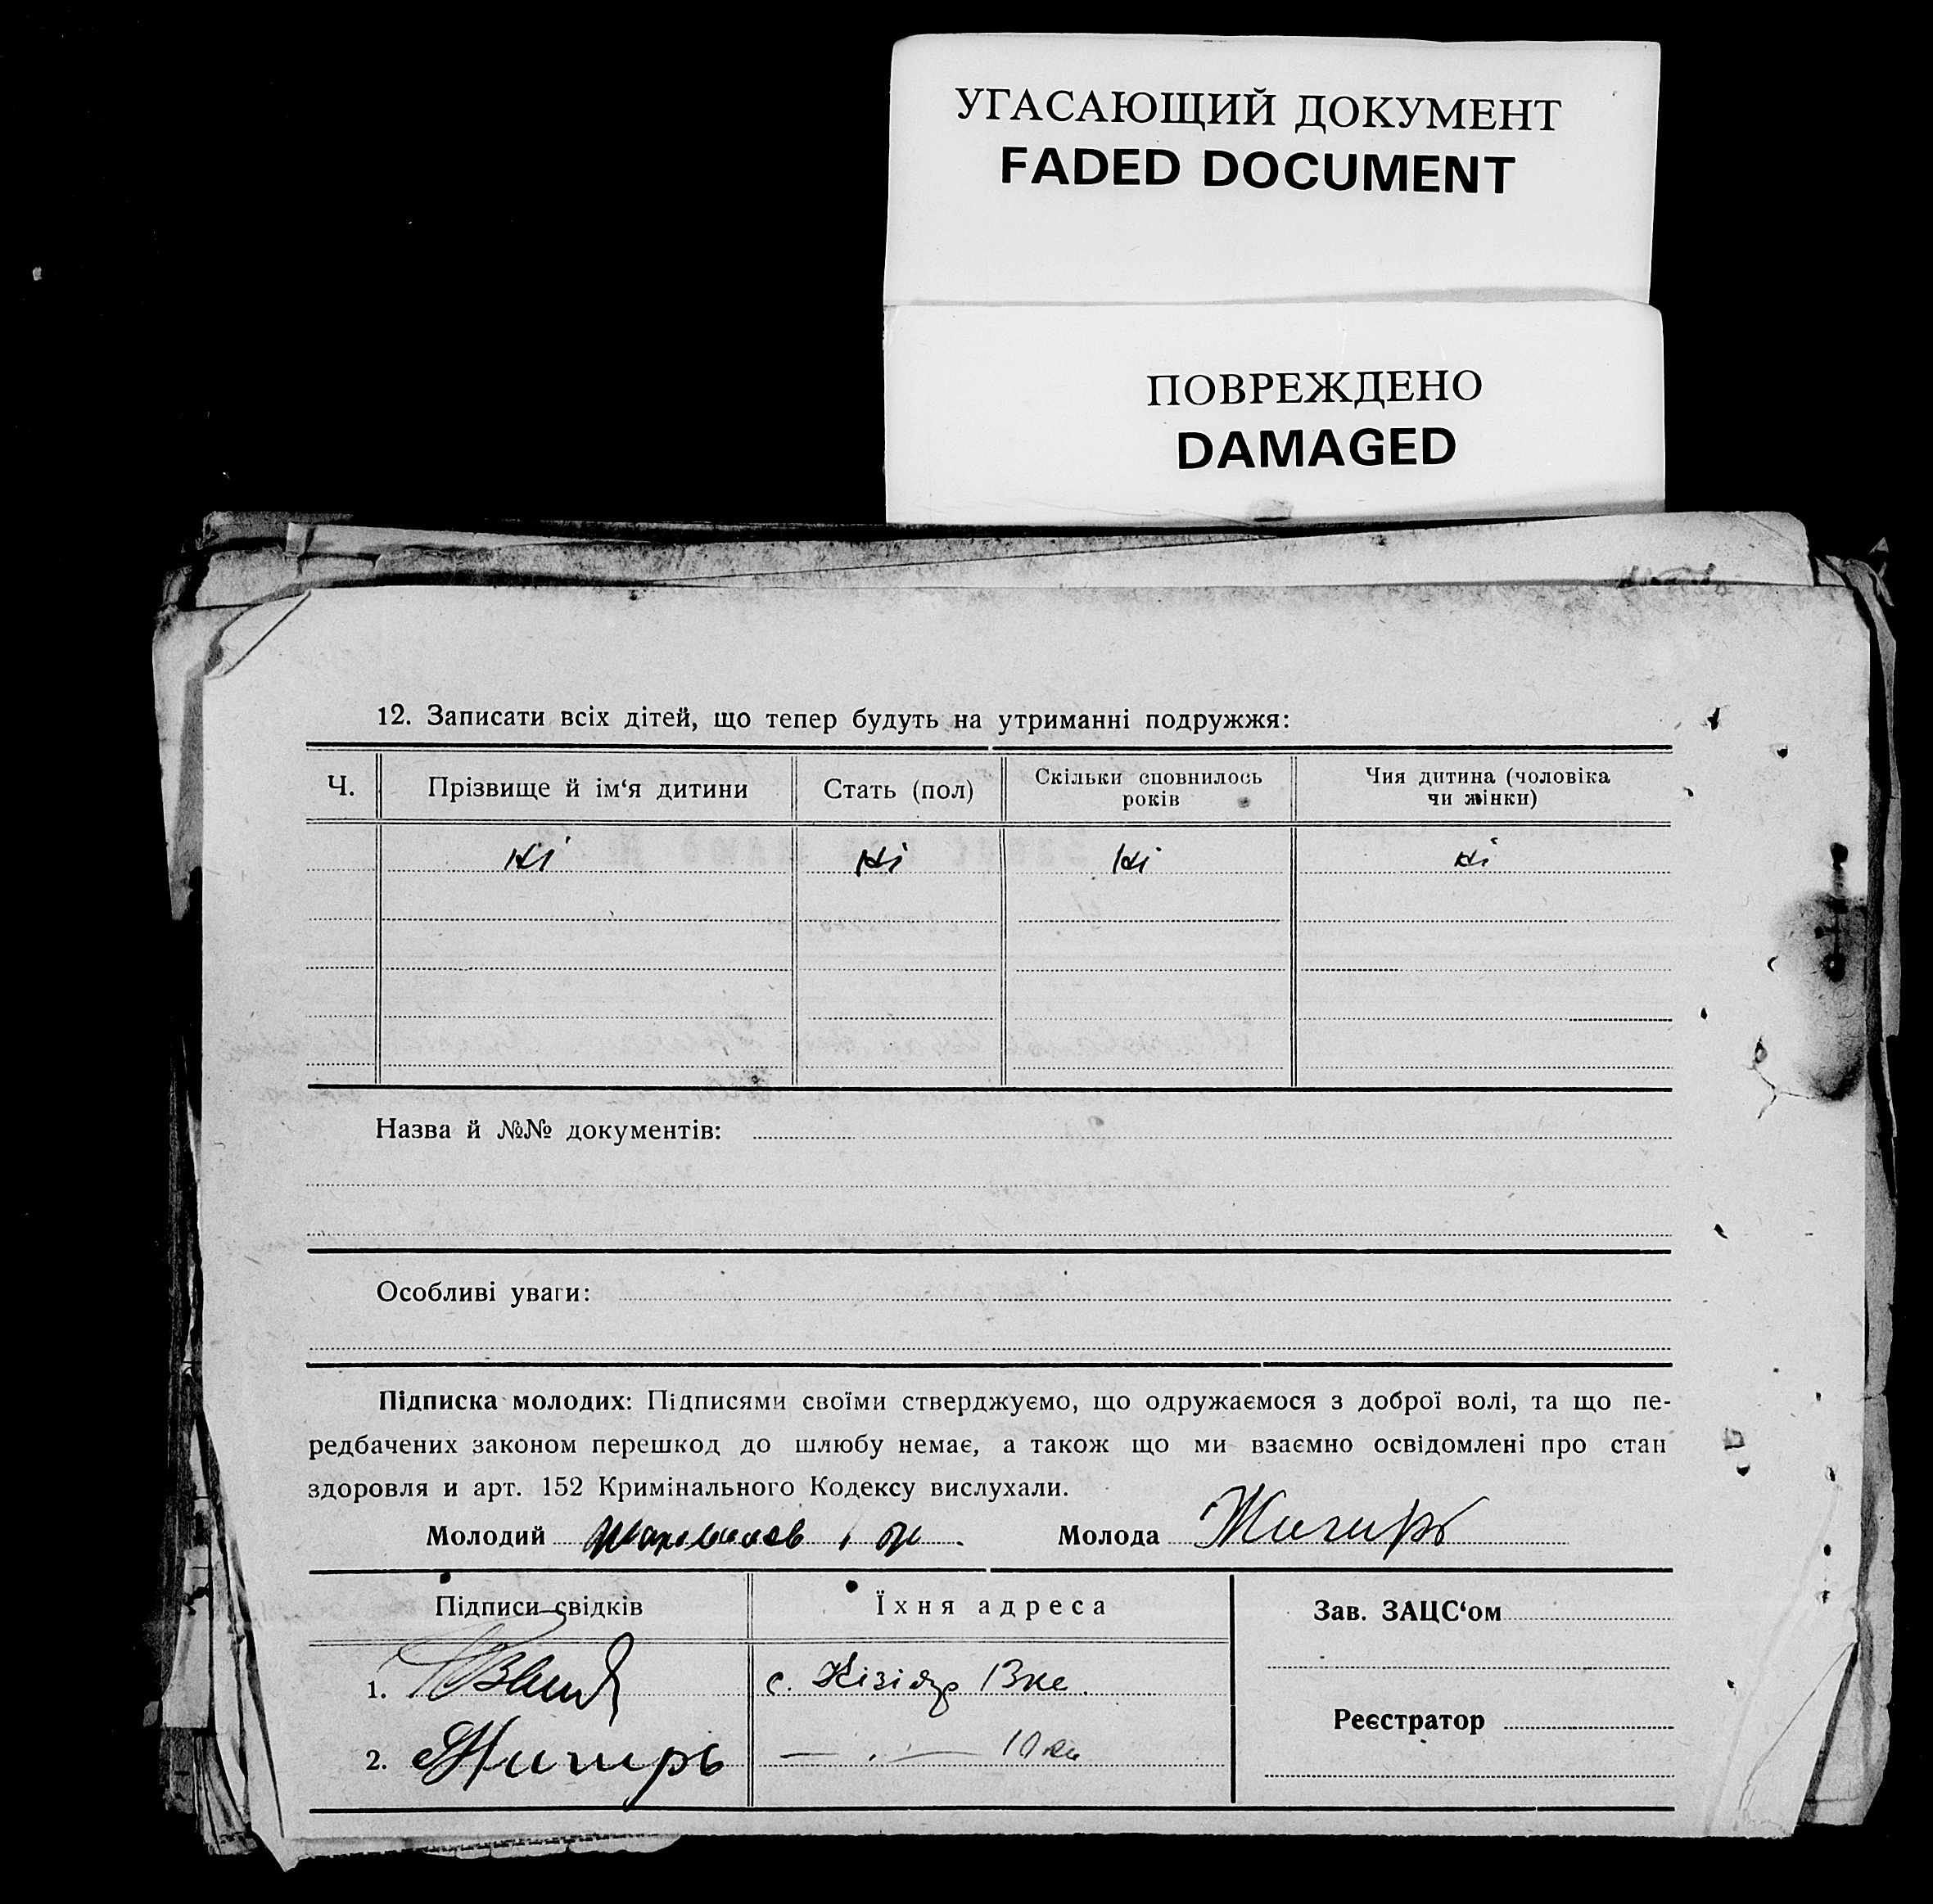 УГАСАЮЩИЙ ДОКУМЕНТ
FADED DOCUMENT
ПОВРЕЖДЕНО
DAMAGED
12. Записати всіх дітей, що тепер будуть на утриманні подружжя:
Ч. Прізвище й ім‘я дитини Стать (пол) Скільки сповнилось років Чия дитина (чоловіка чи жінки)
ні ні ні ні
Назва й №№ документів:
Особливі уваги:
Підписка молодих: Підписями своїми стверджуємо, що одружаємося з доброї волі, та що пе-
редбачених законом перешкод до шлюбу немає, а також що ми взаємно освідомлені про стан
здоровля и арт. 152 Кримінального Кодексу вислухали.
Молодий Молода Жигирь
Підписи свідків Їхня адреса Зав. ЗАЦС‘ом
1. с. Кізіяр
Реєстратор
2. Жигирь